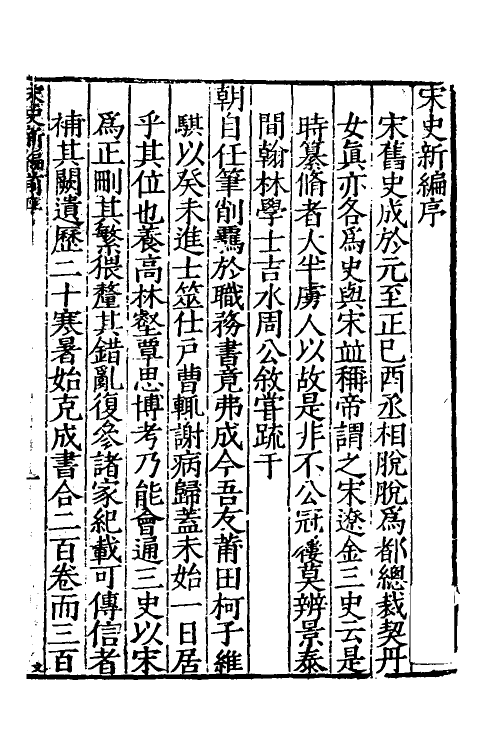 宋史新編序
宋舊史成於元至正己酉丞相脫脫爲都總裁契丹
女眞亦各爲史與宋並稱帝謂之宋遼金三史云是
時纂脩者大半虜人以故是非不公冠履莫辨景泰
間翰林學士吉水周公敘嘗疏于
朝自任筆削羈於職務書竟弗成今吾友莆田柯子維
騏以癸未進士筮仕戶曹輒謝病歸蓋未始一日居
乎其位也養高林壑覃思博考乃能會通三史以宋
爲正刪其繁猥釐其錯亂復參諸家紀載可傳信者
補其闕遺歷二十寒暑始克成書合二百卷而三百
宋史新編前序
一